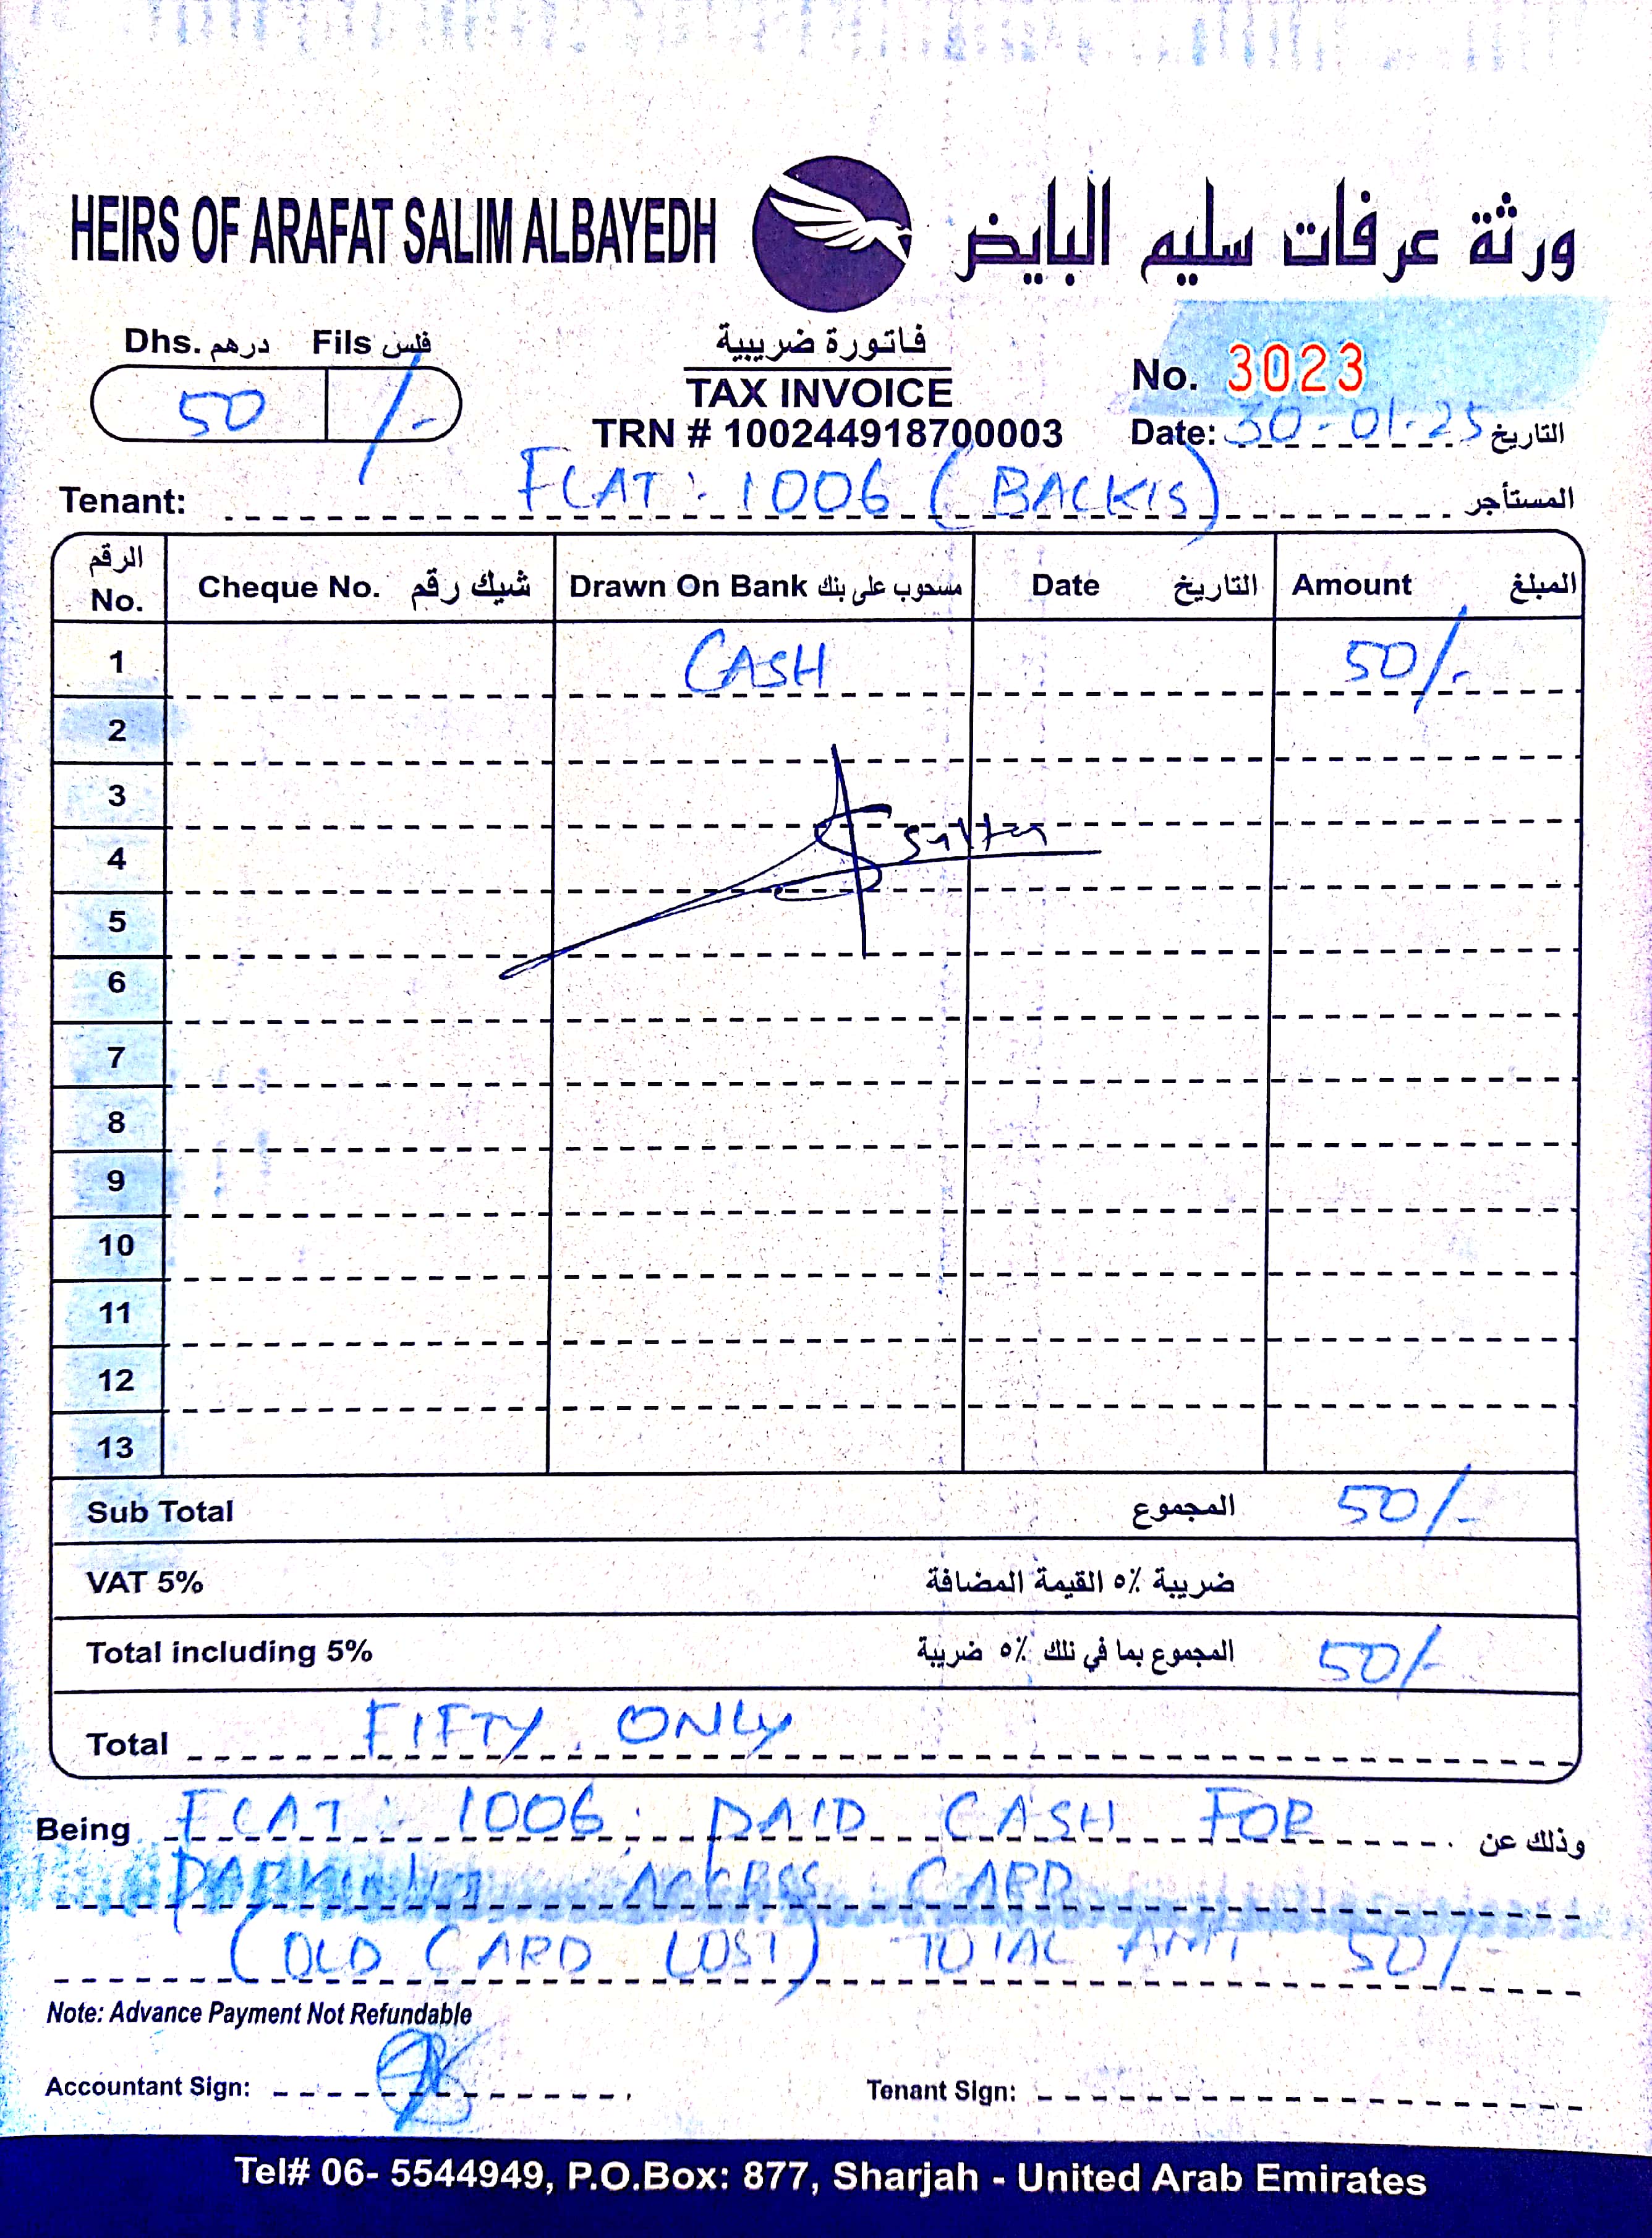 HEIRS OF ARAFAT SALIM ALBAYEDH ورثة عرفات سليم البايض
Dhs. درهم Fils فلس
50 /-
فاتورة ضريبية
TAX INVOICE
TRN # 100244918700003
No. 3023
Date: 30-01-25 التاريخ
Tenant: FLAT: 1006 (BACKIS) المستأجر
الرقم No. Cheque No. شيك رقم Drawn On Bank مسحوب على بنك Date التاريخ Amount المبلغ
1 CASH 50/-
2
3
4
5
6
7
8
9
10
11
12
13
Sub Total المجموع 50/-
VAT 5% ضريبة ٥٪ القيمة المضافة
Total including 5% المجموع بما في ذلك ٥٪ ضريبة 50/-
Total FIFTY ONLY
Being FLAT: 1006. PAID CASH FOR وذلك عن
PARKING ACCESS CARD
(OLD CARD LOST) TOTAL AMT 50/-
Note: Advance Payment Not Refundable
Accountant Sign: Tenant Sign:
Tel# 06- 5544949, P.O.Box: 877, Sharjah - United Arab Emirates